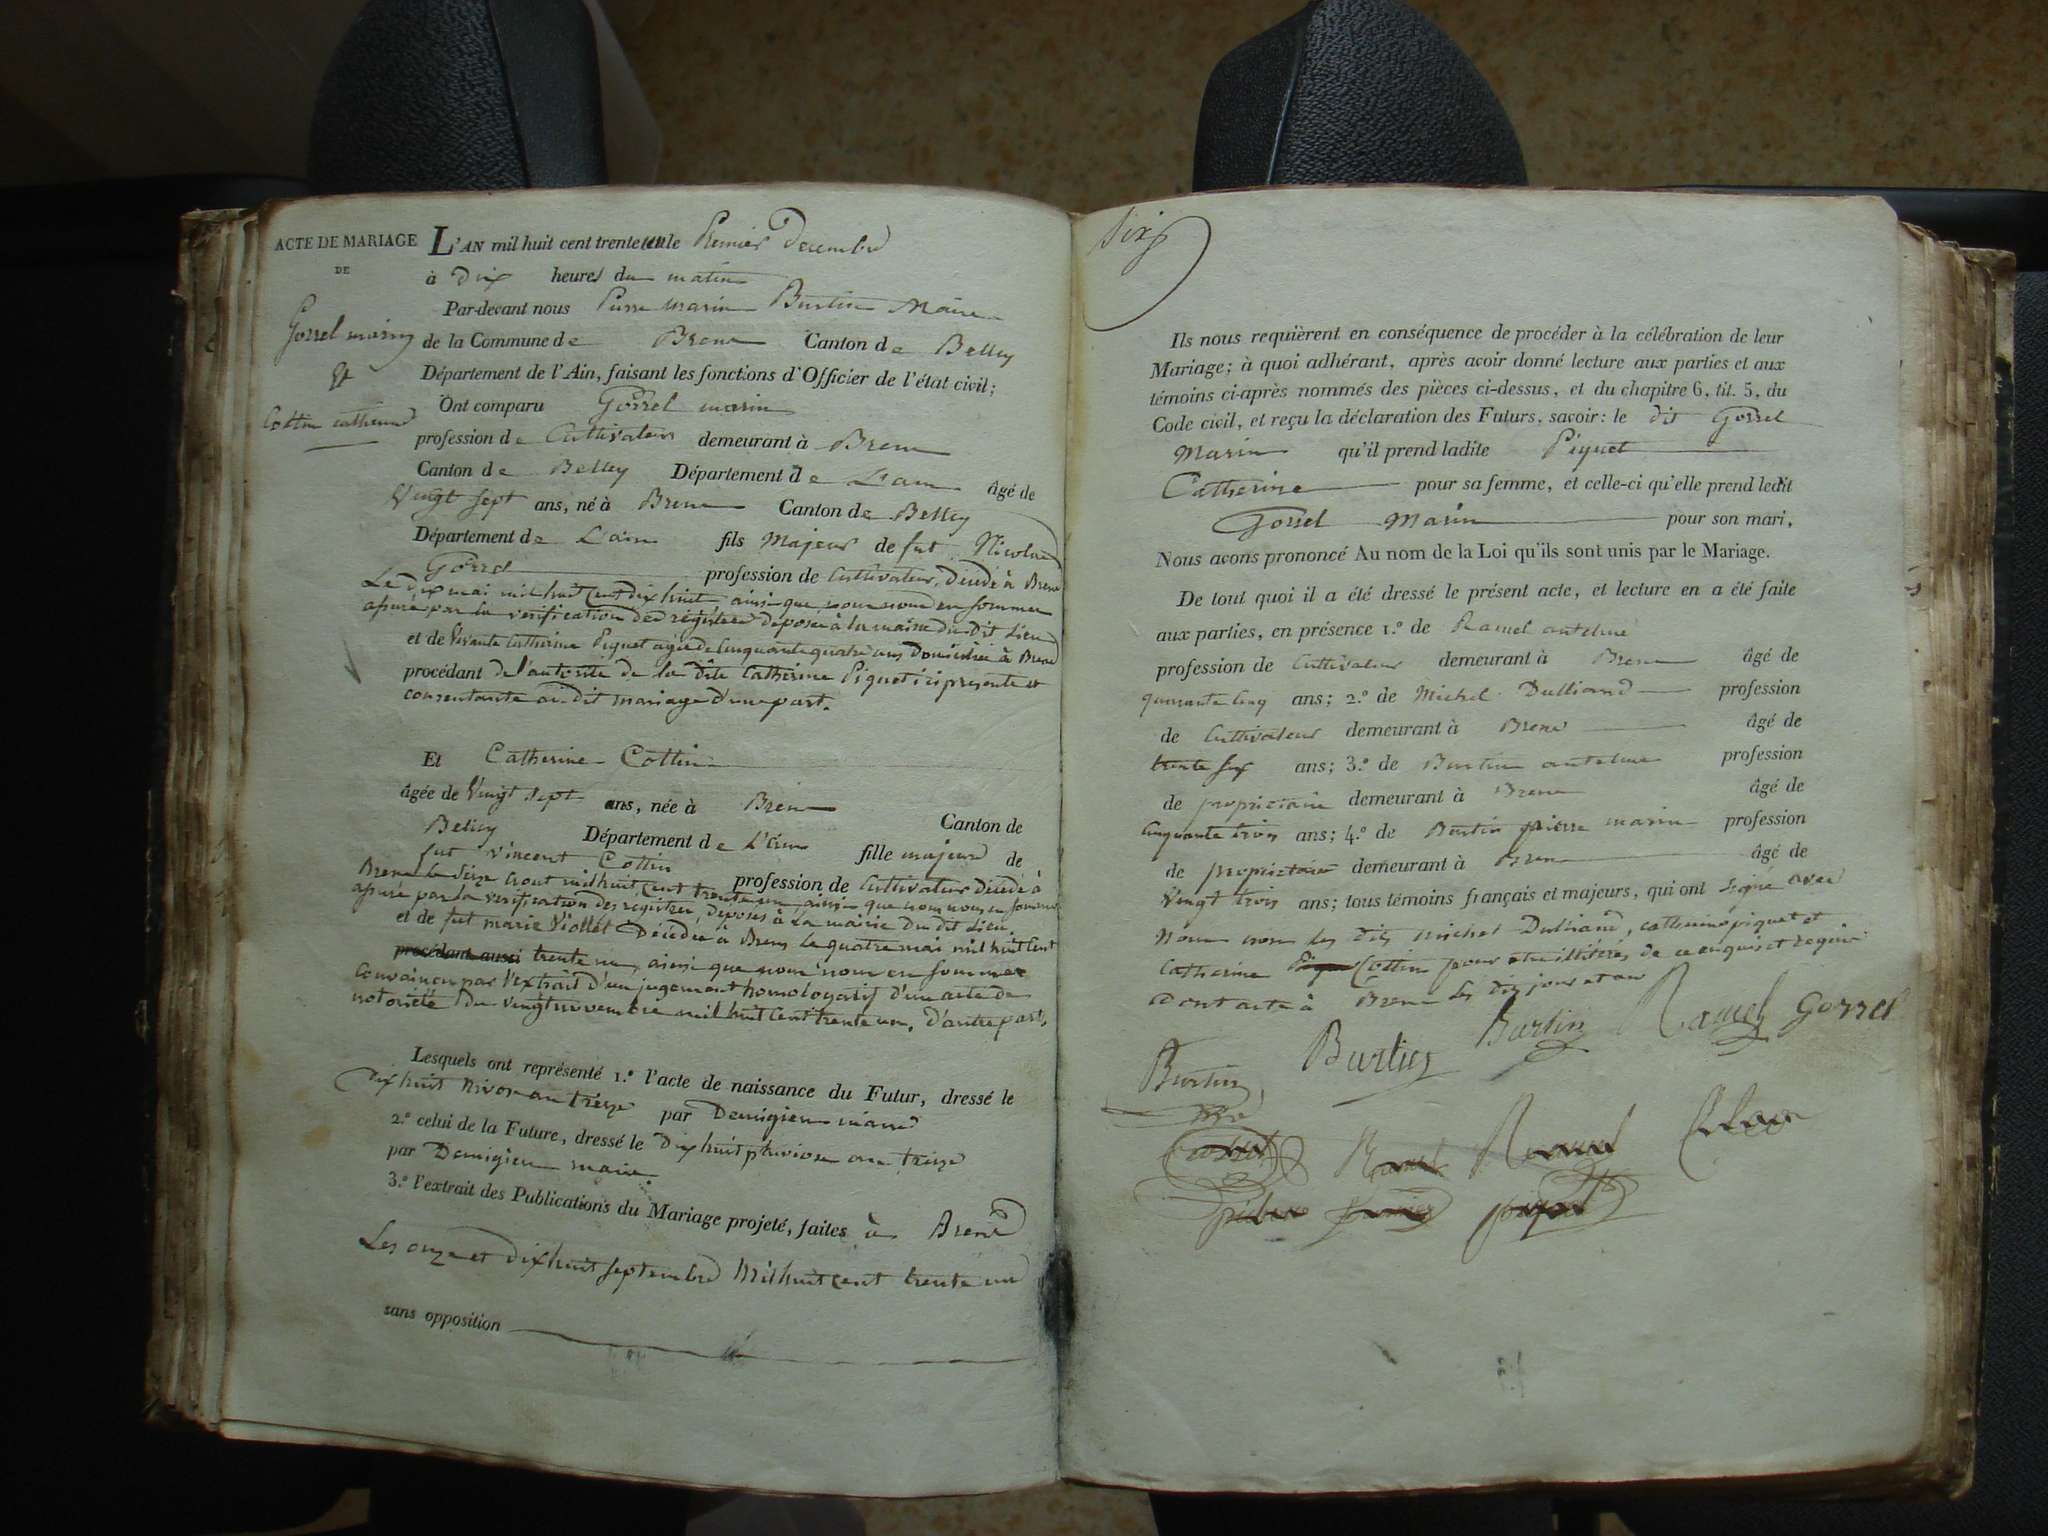 ACTE DE MARIAGE
DE
Gorrel marin
et
Cottin catherine
L'AN mil huit cent trente un le Premier Decembre
à Dix heures du matin
Par-devant nous Pierre marin Burtin Maire
de la Commune de Brens Canton de Belley
Département de l'Ain, faisant les fonctions d'Officier de l'état civil;
Ont comparu Gorrel marin
profession de Cultivateur demeurant à Brens
Canton de Belley Département de L'ain âgé de
Vingt sept ans, né à Brens Canton de Belley
Département de L'ain fils Majeur de fut Nicolas
Gorrel profession de Cultivateur, Décédé à Brens
Le dix mai mil huit Cent dix huit ainsi que nous nous en sommes
assuré par la vérification des régistres déposés à la mairie du dit Lieu
et de Vivante Catherine Piquet agée de Cinquante quatre ans Domiciliée à Brens
procédant de l'autorité de la dite Catherine Piquet ici présente et
consentante au dit mariage d'une part.
Et Catherine Cottin
âgée de Vingt sept ans, née à Brens Canton de
Belley Département de L'ain fille majeure de
fut Vincent Cottin profession de Cultivateur Décédé à
Brens le Seize aout mil huit Cent trente un, ainsi que nous nous en sommes
assuré par la vérification des registres déposés à la mairie du dit Lieu
et de fut marie Viollet Décédée à Brens le quatre mai mil huit Cent
procédant aussi trente un, ainsi que nous nous en sommes
convaincu par l'extrait d'un jugement homologatif d'un acte de
notoriété du vingt novembre mil huit Cent trente un, d'autre part,
Lesquels ont représenté 1.º l'acte de naissance du Futur, dressé le
Dix huit nivose an treize par Demigieu maire
2.º celui de la Future, dressé le Dix huit pluviose an treize
par Demigieu maire.
3.º l'extrait des Publications du Mariage projeté, faites à Brens
Les onze et Dix huit septembre Mil huit Cent trente un
sans opposition
Six
Ils nous requièrent en conséquence de procéder à la célébration de leur
Mariage; à quoi adhérant, après avoir donné lecture aux parties et aux
témoins ci-après nommés des pièces ci-dessus, et du chapitre 6, tit. 5, du
Code civil, et reçu la déclaration des Futurs, savoir: le dit Gorrel
Marin qu'il prend ladite Piquet
Catherine pour sa femme, et celle-ci qu'elle prend ledit
Gorrel Marin pour son mari,
Nous avons prononcé Au nom de la Loi qu'ils sont unis par le Mariage.
De tout quoi il a été dressé le présent acte, et lecture en a été faite
aux parties, en présence 1.º de Ramel antelme
profession de Cultivateur demeurant à Brens âgé de
quarante Cinq ans; 2.º de Michel Dulliand profession
de Cultivateur demeurant à Brens âgé de
trente six ans; 3.º de Burtin antelme profession
de propriétaire demeurant à Brens âgé de
Cinquante trois ans; 4.º de Burtin pierre marin profession
de propriétaire demeurant à Brens âgé de
Vingt trois ans; tous témoins français et majeurs, qui ont signé avec
nous non les dits michel Dulliand, catherine piquet et
Catherine Cottin pour etre illitérés de ce enquis et requis
dont acte à Brens Les dits jour et an
Burtin Burtin Ramel Gorrel
Burtin
Ramel Ramel